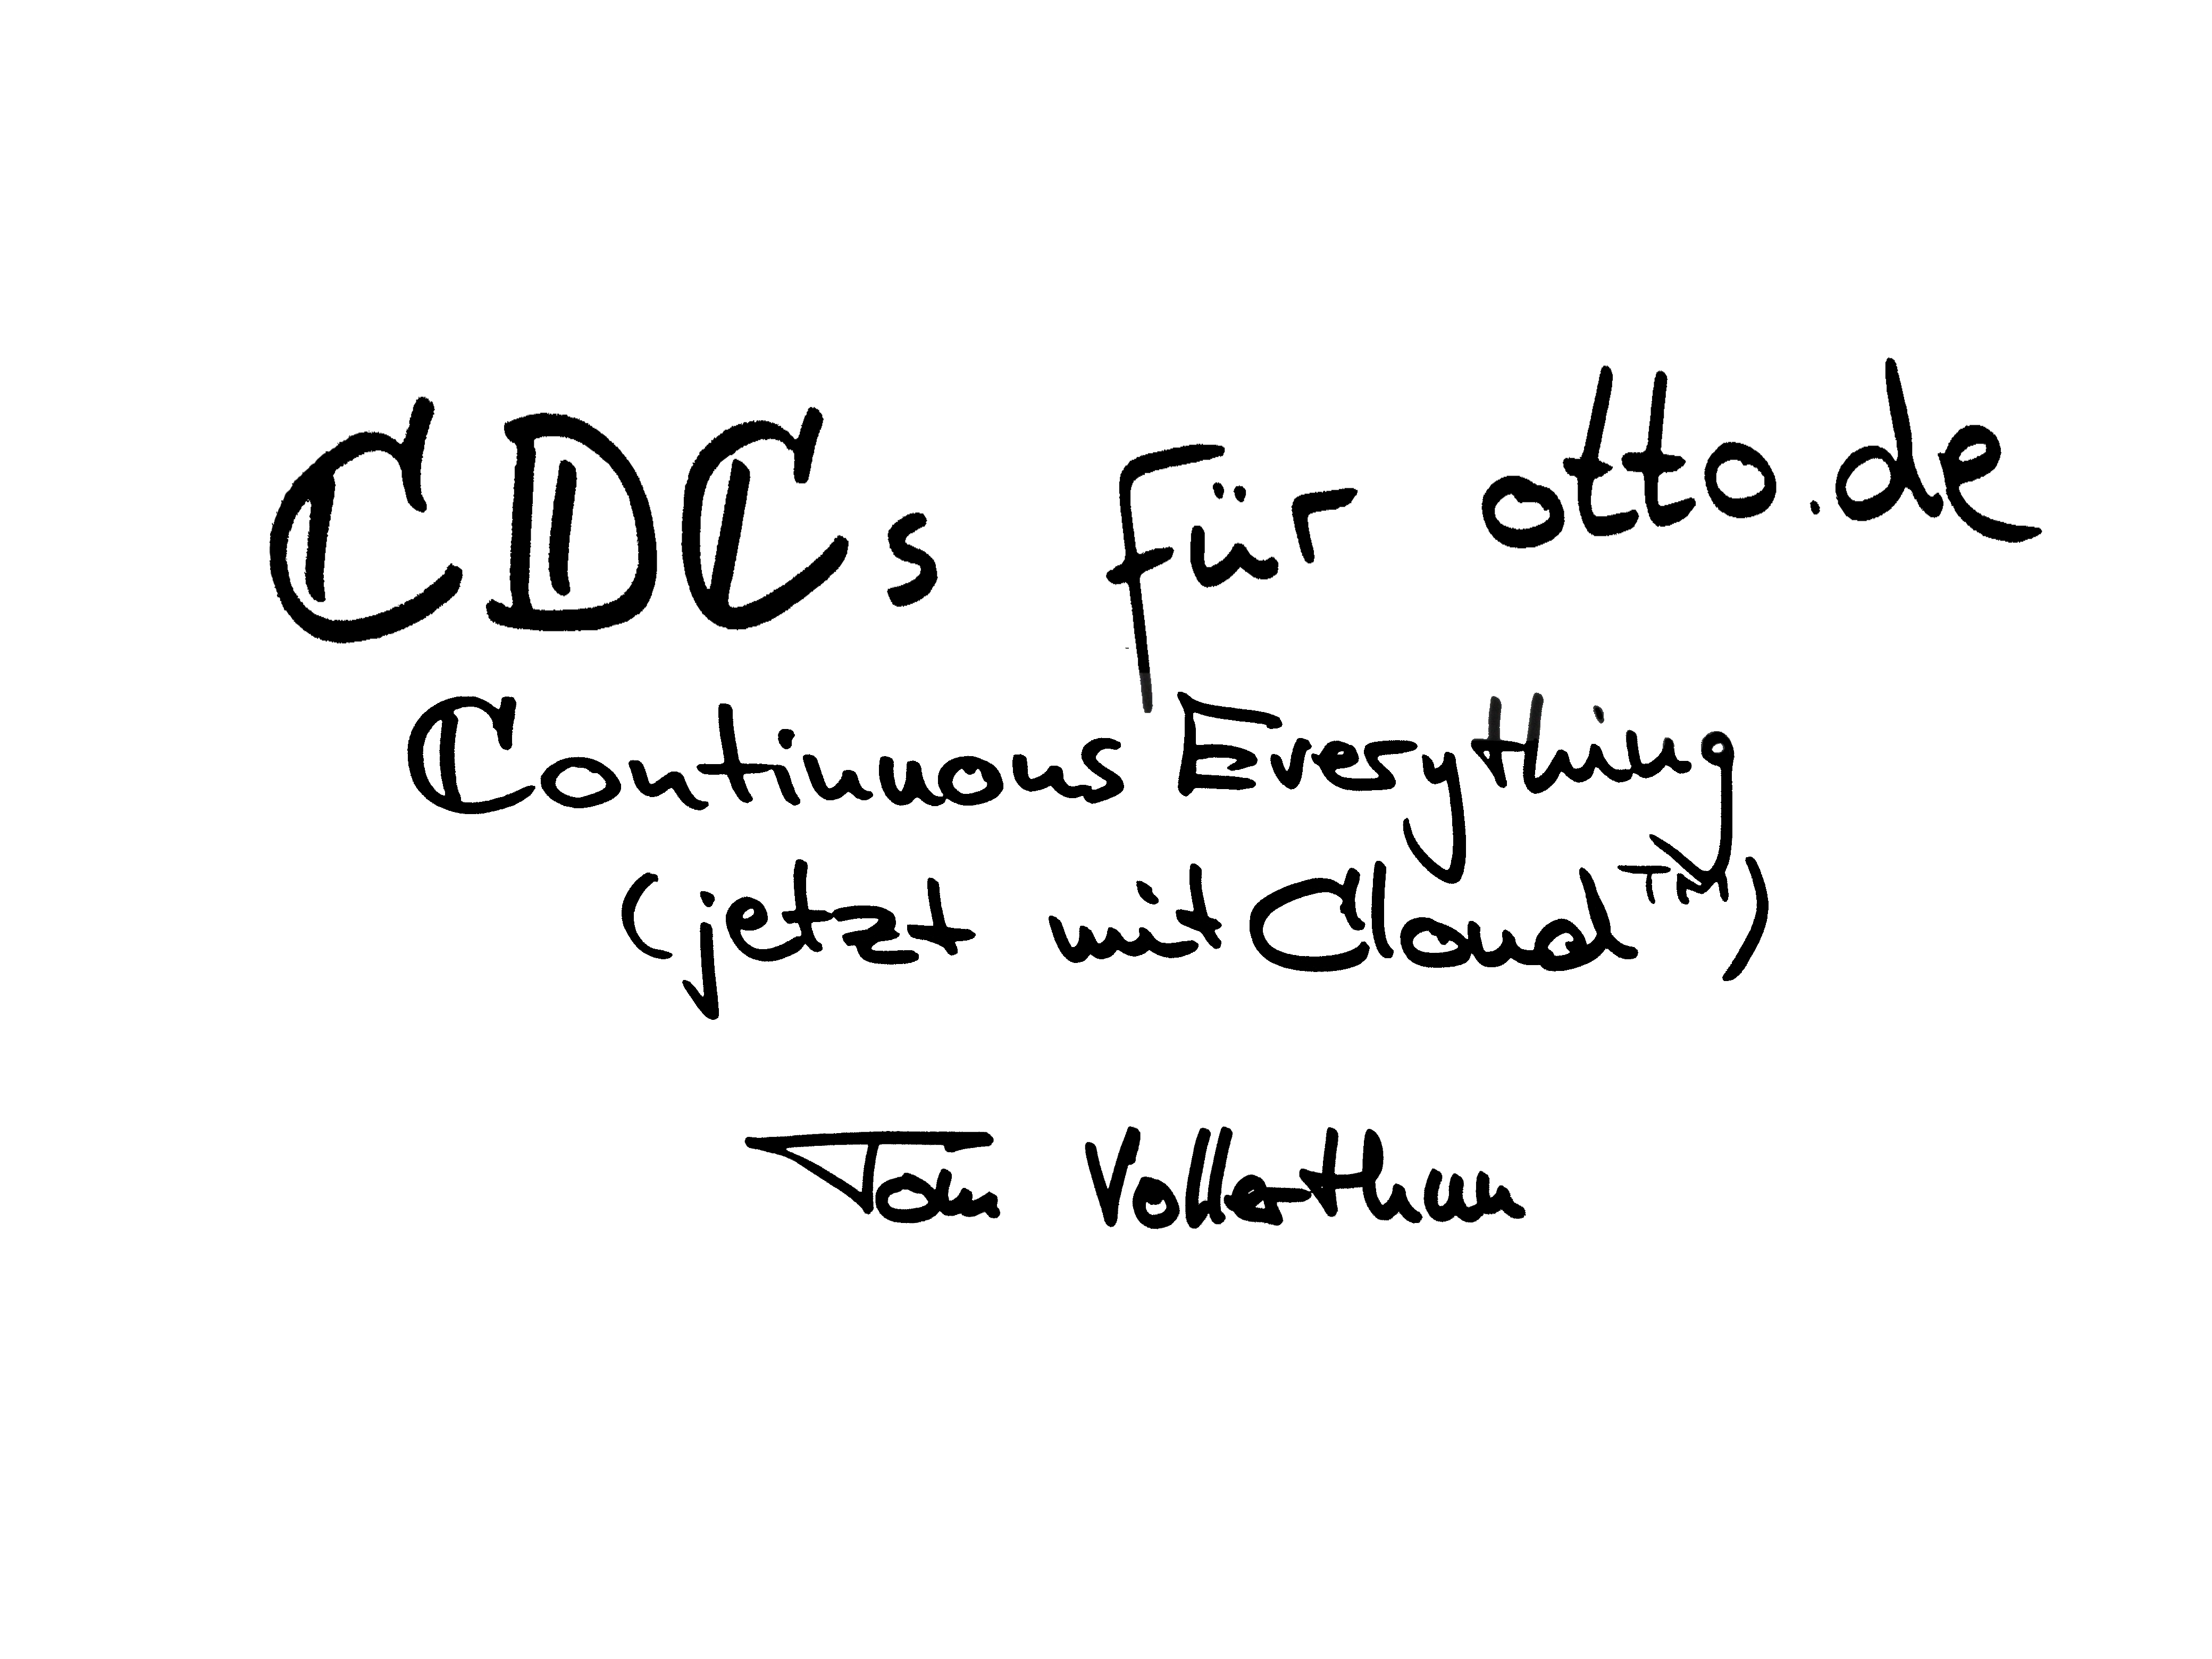 CDCs für otto.de
Continuous Everything
(jetzt mit Cloud™)
Tom Vollerthun